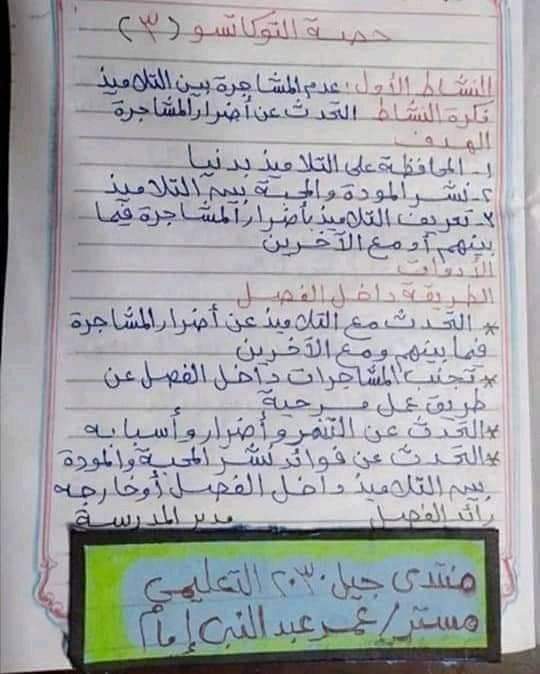 حصة التوكاتسو (٣)
النشاط الأول: عدم المشاجرة بين التلاميذ
فكرة النشاط التحدث عن أضرار المشاجرة
الهدف
١- المحافظة على التلاميذ بدنيا
٢- نشر المودة والمحبة بين التلاميذ
٣- تعريف التلاميذ بأضرار المشاجرة فيما
بينهم أو مع الآخرين
الأدوات
الطريقة داخل الفصل
* التحدث مع التلاميذ عن أضرار المشاجرة
فيما بينهم ومع الآخرين
* تجنب المشاجرات داخل الفصل عن
طريق عمل مسرحية
* التحدث عن التنمر وأضرار وأسبابه
* التحدث عن فوائد نشر المحبة والمودة
بين التلاميذ داخل الفصل أو خارجه
رائد الفصل مدير المدرسة
منتدى جيل ٢٠٣٠ التعليمي
مستر/ عمر عبد النبى إمام